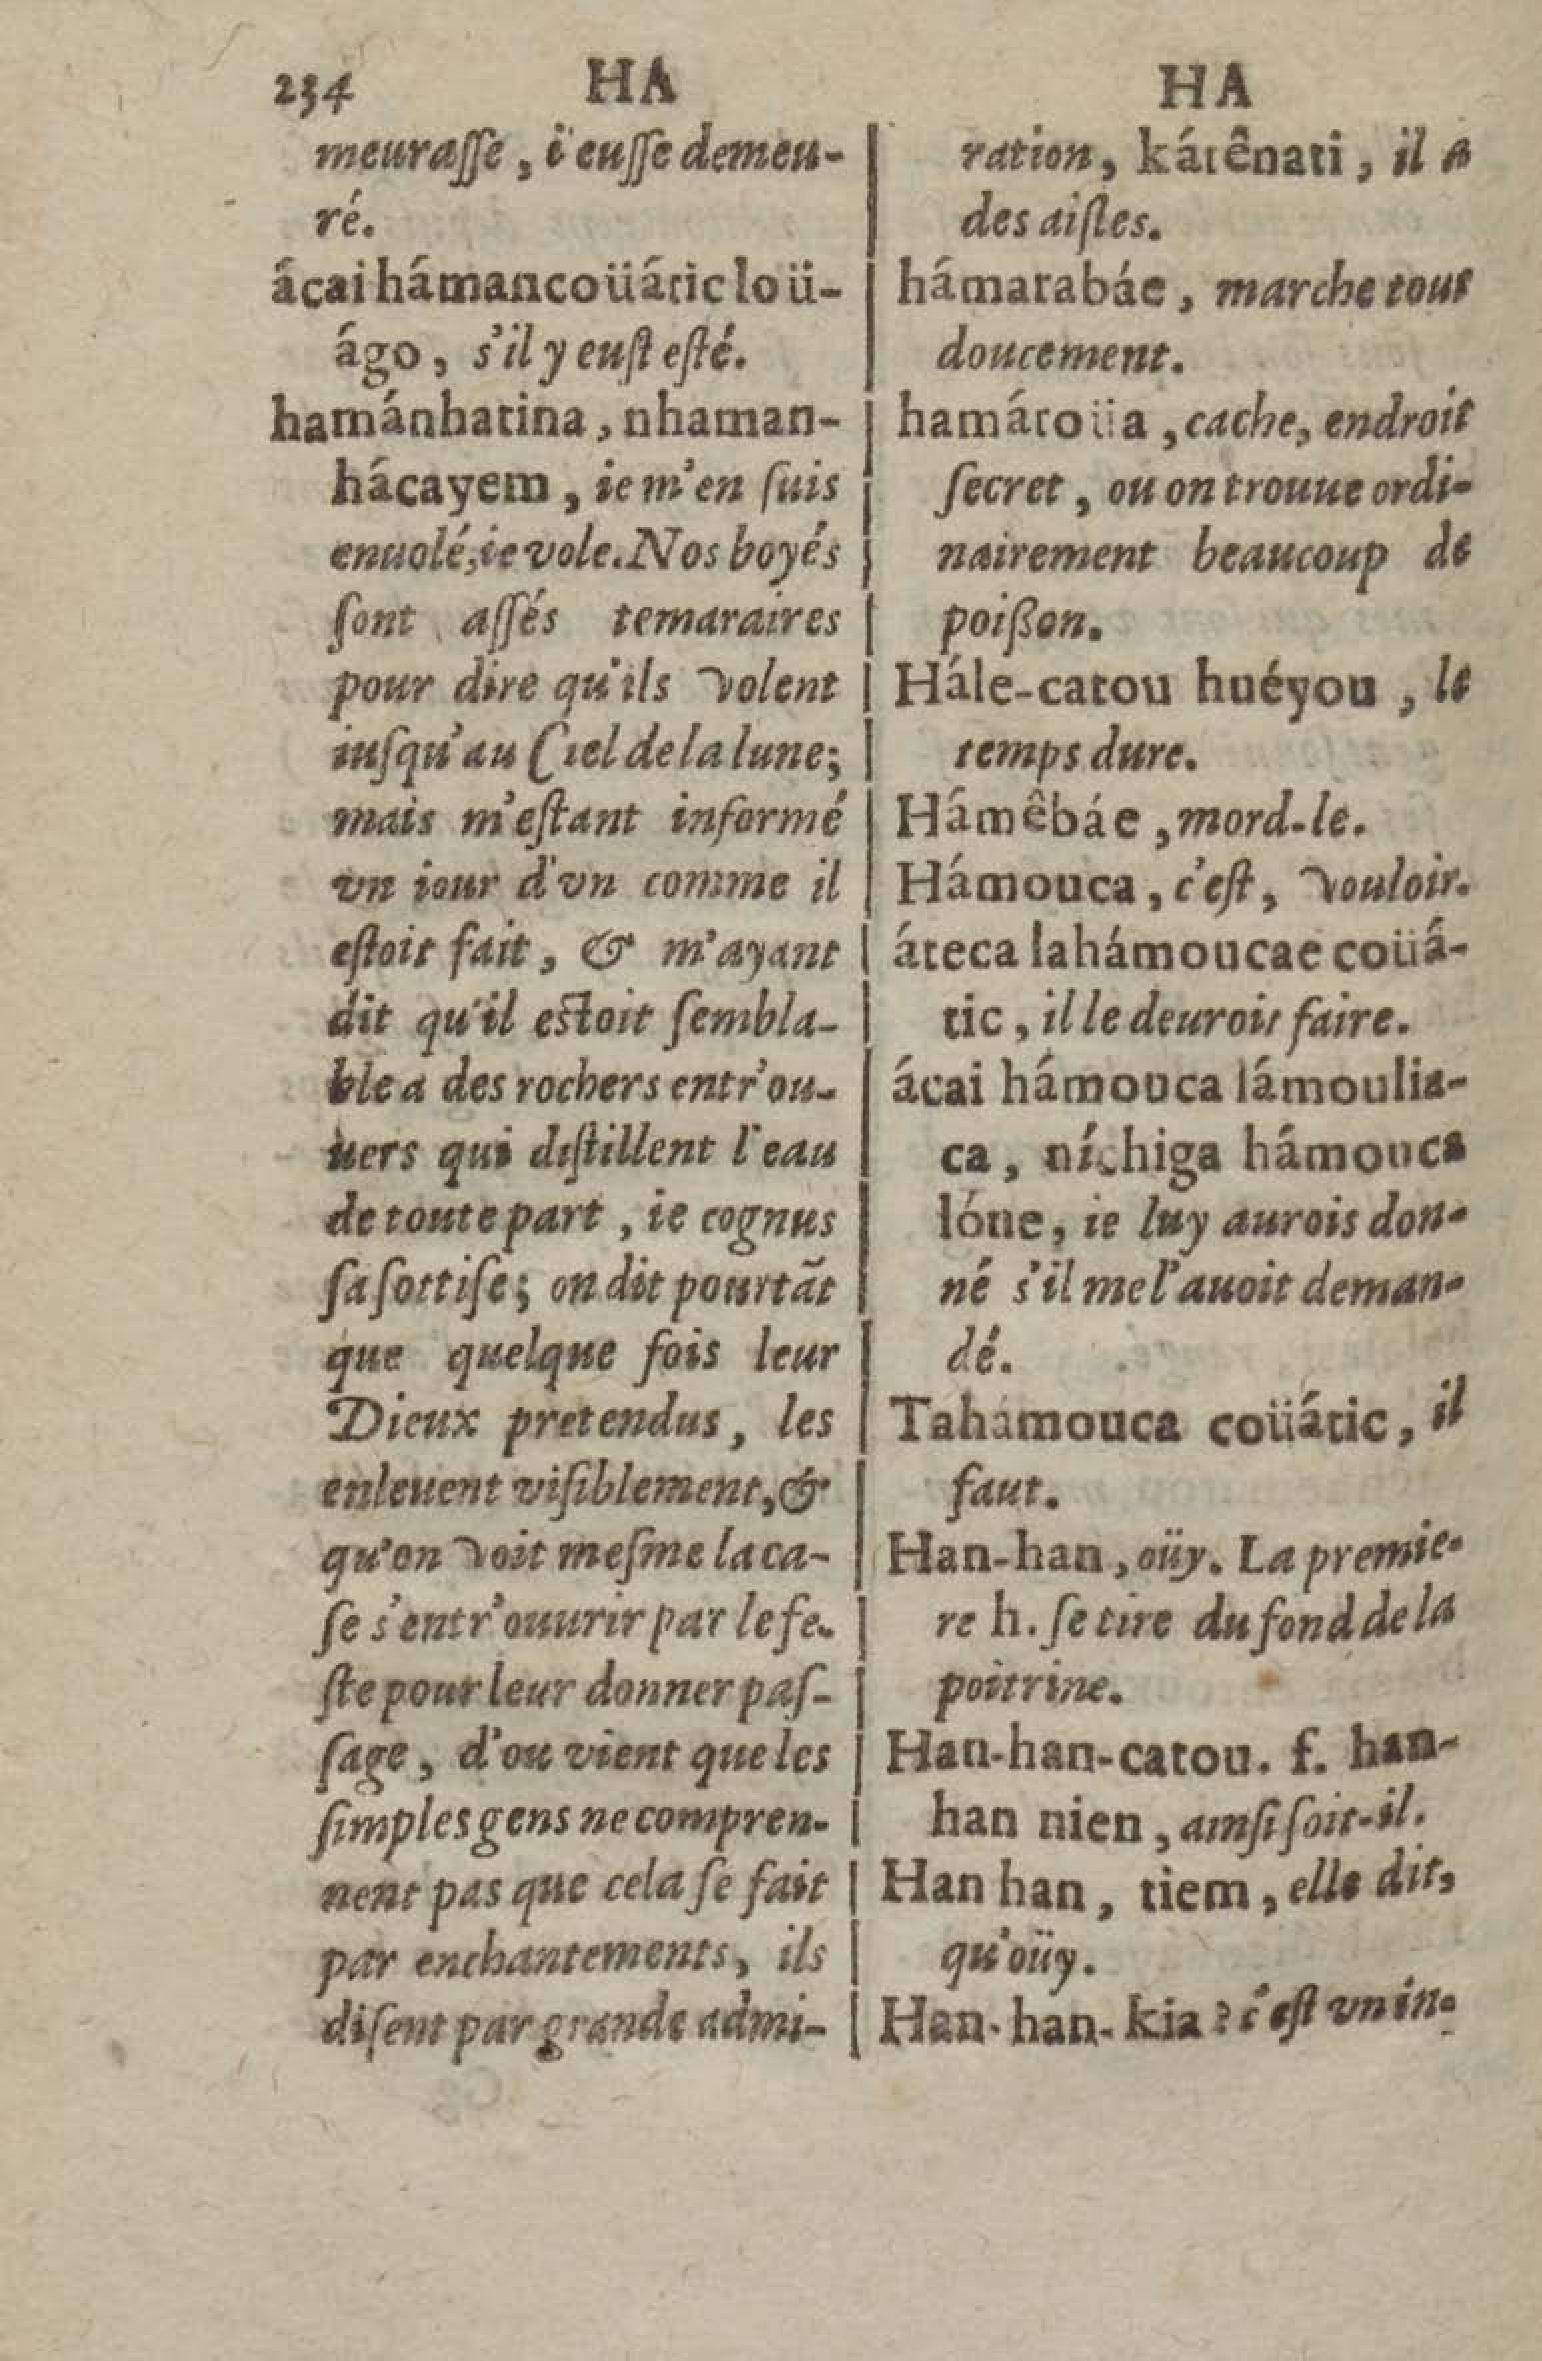 234 HA HA
meuraſſe, i'euſſe demeu-
ré.
ácai hámancoüátic loü-
ágo, s'il y euſt eſté.
hamánhatina, nhaman-
hácayem, ie m'en ſuis
enuolé, ie vole. Nos boyés
ſont aſſés temaraires
pour dire qu'ils volent
iuſqu'au Ciel de la lune;
mais m'eſtant informé
vn iour d'vn comme il
eſtoit fait, & m'ayant
dit qu'il eſtoit ſembla-
ble a des rochers entr'ou-
uers qui diſtillent l'eau
de toute part, ie cognus
ſa ſottiſe; on dit pourtãt
que quelque fois leur
Dieux pretendus, les
enleuent viſiblement, &
qu'on voit meſme la ca-
ſe s'entr'ouurir par le fe-
ſte pour leur donner paſ-
ſage, d'ou vient que les
ſimples gens ne compren-
nent pas que cela ſe fait
par enchantements, ils
diſent par grande admi-
ration, kátênati, il a
des aiſles.
hámatabáe, marche tout
doucement.
hamátoüa, cache, endroit
ſecret, ou on trouue ordi-
nairement beaucoup de
poißon.
Hále-catou huéyou, le
temps dure.
Hámêbáe, mord-le.
Hámouca, c'eſt, vouloir.
áteca lahámoucae coüá-
tic, il le deuroit faire.
ácai hámouca lámoulia-
ca, níchiga hámouca
lóne, ie luy aurois don-
né s'il me l'auoit deman-
dé.
Tahámouca coüátic, il
faut.
Han-han, oüy. La premie-
re h. ſe tire du fond de la
poitrine.
Han-han-catou. f. han-
han nien, ainſi ſoit-il.
Han han, tiem, elle dit,
qu'oüy.
Han-han-kia? c'eſt vn in-